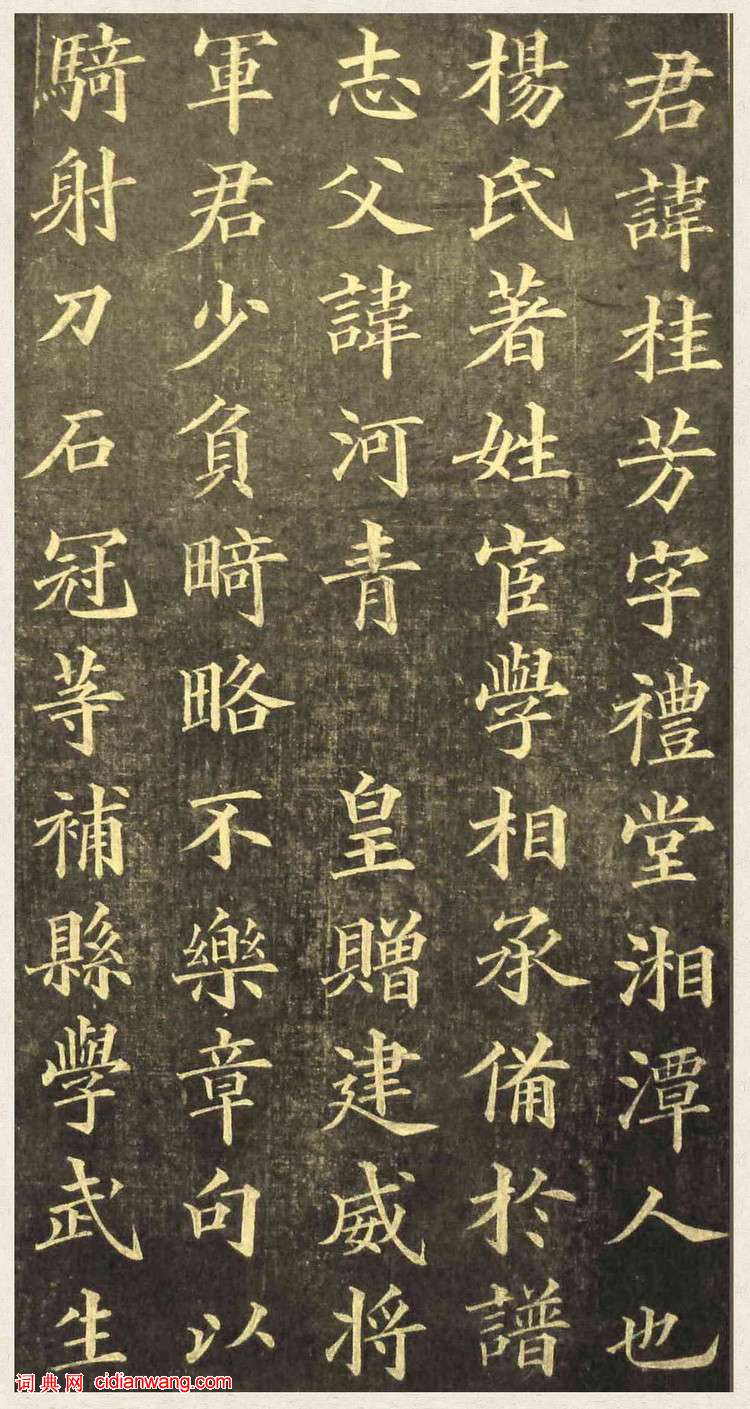 君諱桂芳字禮堂湘潭人也
楊氏著姓宦學相承備於譜
志父諱河青 皇贈建威将
軍君少負畸略不樂章句以
騎射刀石冠等補縣學武生
词典网 cidianwang.com